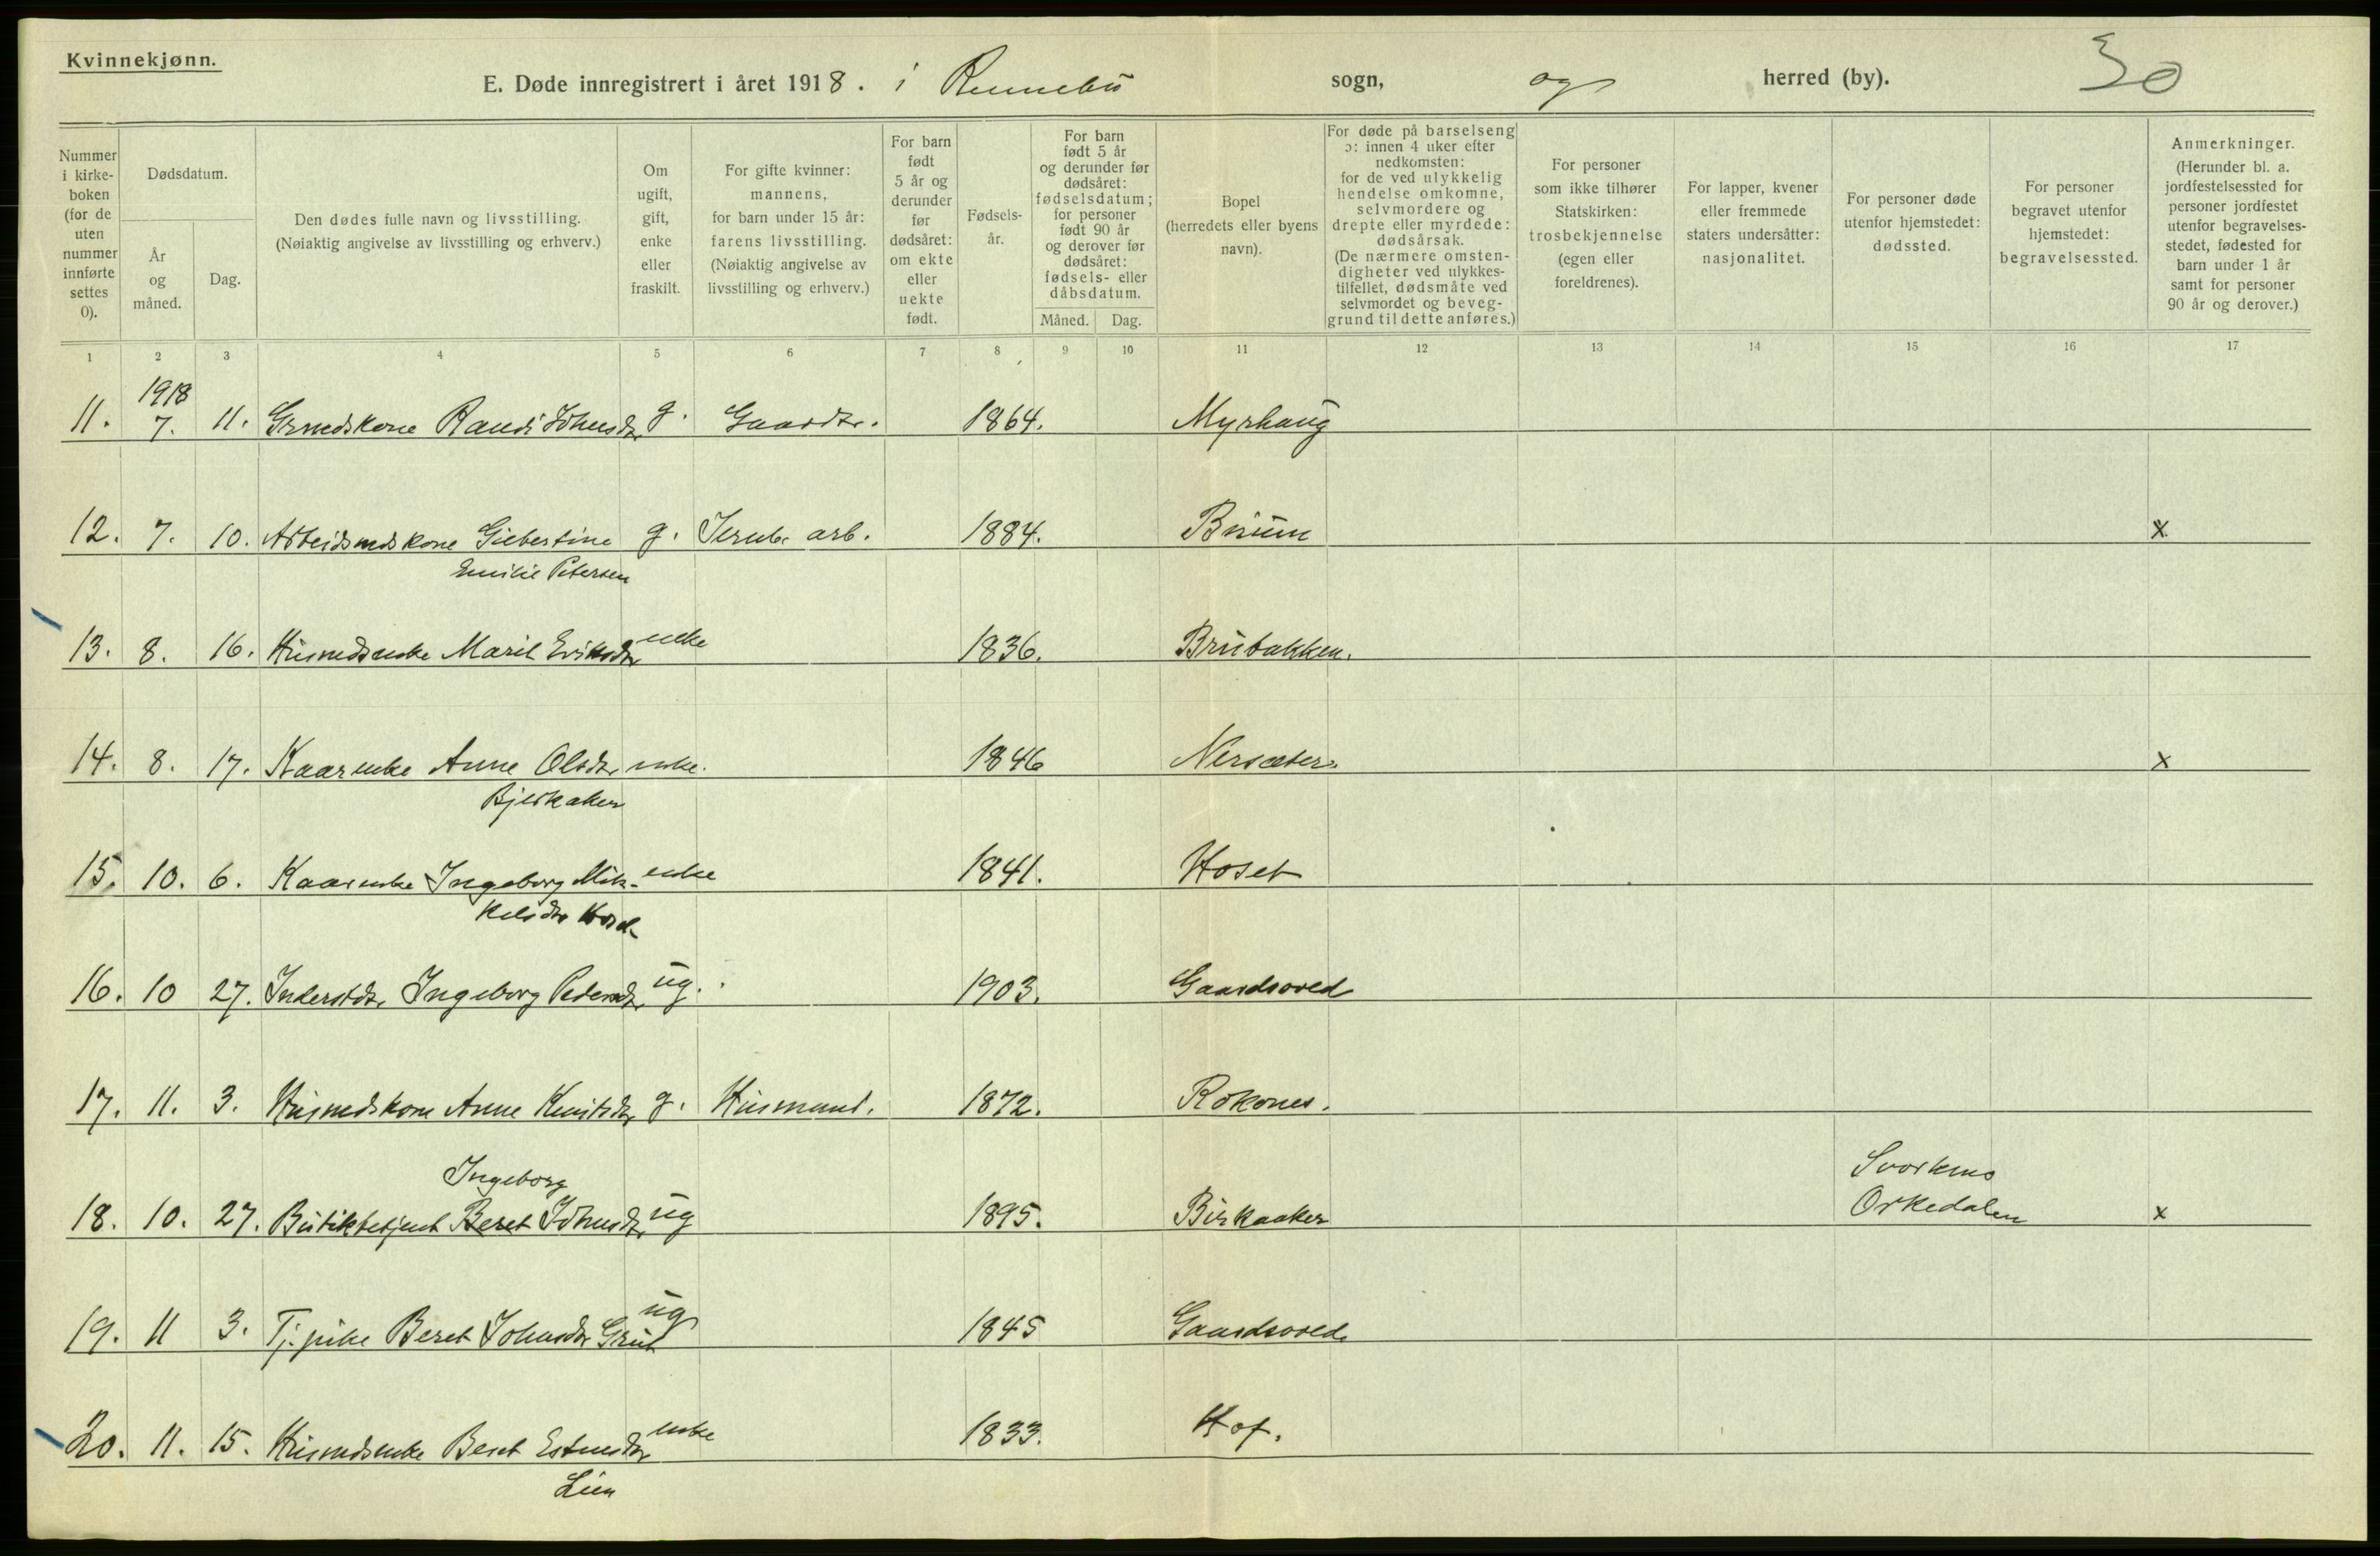 Kvinnekjønn.
E. Døde innregistrert i året 1918. i Rennebu sogn, og herred (by). 30
Nummer i kirkeboken (for de uten nummer innførte settes 0).
Dødsdatum.
År og måned.
Dag.
Den dødes fulle navn og livsstilling.
(Nøiaktig angivelse av livsstilling og erhverv.)
Om ugift, gift, enke eller fraskilt.
For gifte kvinner: mannens, for barn under 15 år: farens livsstilling. (Nøiaktig angivelse av livsstilling og erhverv.)
For barn født 5 år og derunder før dødsåret: om ekte eller uekte født.
Fødselsår.
For barn født 5 år og derunder før dødsåret: fødselsdatum; for personer født 90 år og derover før dødsåret: fødsels- eller dåbsdatum.
Måned. Dag.
Bopel (herredets eller byens navn).
For døde på barselseng ɔ: innen 4 uker efter nedkomsten: for de ved ulykkelig hendelse omkomne, selvmordere og drepte eller myrdede: dødsårsak. (De nærmere omstendigheter ved ulykkestilfellet, dødsmåte ved selvmordet og beveggrund til dette anføres.)
For personer som ikke tilhører Statskirken: trosbekjennelse (egen eller foreldrenes).
For lapper, kvener eller fremmede staters undersåtter: nasjonalitet.
For personer døde utenfor hjemstedet: dødssted.
For personer begravet utenfor hjemstedet: begravelsessted.
Anmerkninger. (Herunder bl. a. jordfestelsessted for personer jordfestet utenfor begravelsesstedet, fødested for barn under 1 år samt for personer 90 år og derover.)
1 2 3 4 5 6 7 8 9 10 11 12 13 14 15 16 17
1918
11. 7. 11. Grmdskone Randi Johnsdr g. Gaardbr. 1864. Myrhaug
12. 7. 10. Arbeidsmdskone Giebertine g. Jernb. arb. 1884. Bruum x
Emilie Petersen
13. 8. 16. Husmdsenke Marit Eriksdr enke 1836. Brubakken.
14. 8. 17. Kaarenke Anne Olsdr enke. 1846 Nersæter. x
Bjerkaker
15. 10. 6. Kaarenke Ingeborg Mik- enke 1841. Hoset
kelsdr Hoset
16. 10 27. Inderstdr. Ingeborg Pedersdr ug. 1903. Gaardsvold
17. 11. 3. Husmdskone Anne Knutsdr g. Husmand. 1872. Rokones.
Ingeborg Svorkmo
18. 10. 27. Butikbetjent Beret Johnsdr ug 1895. Birkaaker Orkedalen x
19. 11 3. Tj. pike Beret Johnsdr Grut ug 1845 Gaardsvold
20. 11. 15. Husmdsenke Beret Estensdr enke 1833. Hof.
Lien